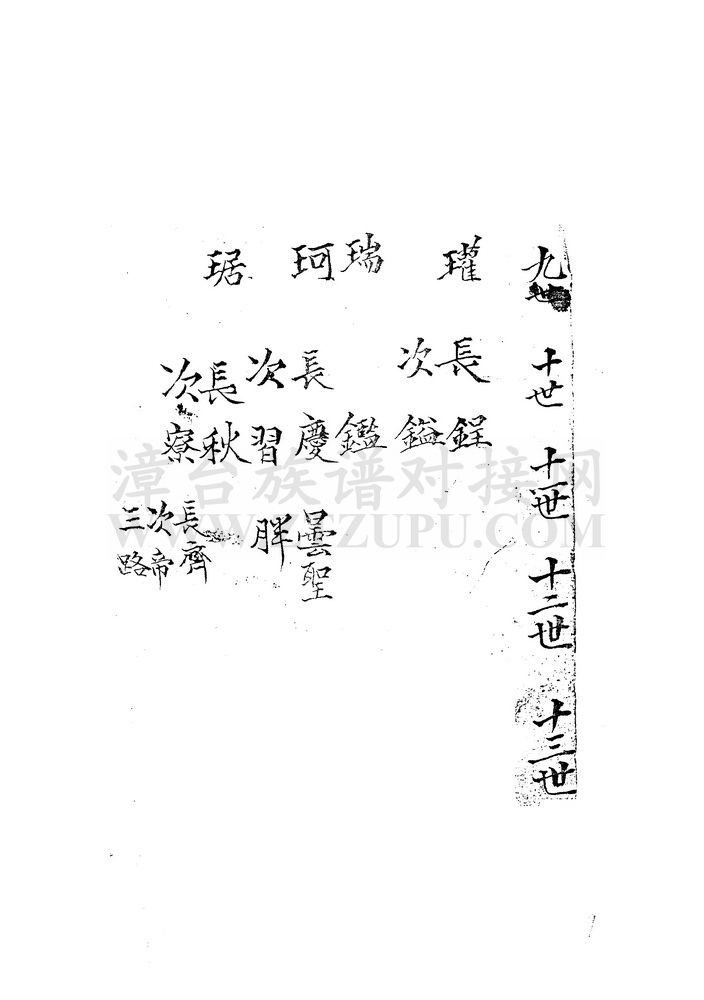 九世
十世
十一世
十二世
十三世
瓘
長鋥
次鎰
瑞
鑑
珂
長慶
曇聖
次習
胖
琚
長秋
長齊
次帝
三路
次寮
漳台族谱对接网
WWW.ZTZUPU.COM